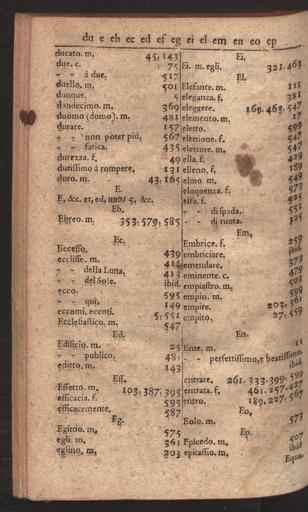 du e eb ec ed ef eg ei el em en eo ep
ducato. m. 45; 143
due. c. 75
- - à due. 517
duello. m. 501
dunque. 5
duodecimo. m. 369
duòmo (domo). m. 481
durare. 157
- - non poter più, 567
- - fatica. 435
durezza. f. 49
durissimo à rompere, 131
duro. m. 43, 165
E.
E, &c. et, ed, uno/ 5, &c.
Eb.
Ebreo. m. 353; 579; 585
Ec.
Eccesso. 439
ecclisse. m. 411
- - della Luna, 413
- - del Sole. ibid.
ecco. 595
- - qui, 149
eccomi, eccoti. 5; 551
Ecclesiastico. m. 547
Ed.
Edificio. m. 25
- - publico. 481
editto. m. 143
Eff.
Effetto. m. 103, 387; 395
efficacia. f. 595
efficacemente. 587
Eg.
Egittio. m. 575
egli. m. 361
eglino, m. 203
Ei.
Ei. m. egli. 321. 463
El.
Elefante. m. 111
eleganza. f. 381
eleggere. 169. 463. 547
elemento. m. 17
eletto. 599
elettione. f. 547
elettore. m. 547
ella. f. 429
elleno, f. 189
elmo. m. 549
eloquenza. f. 573
elsa. f. 425
- - di spada. 551
- - di ruota. 325
Em.
Embrice. f. 259
embriciare. ibid.
emendare, 373
eminente. c. 479
empiastro. m. 503
empio. m. 599
empire. 203, 361
empito. 27; 559
En.
Ente. m. 11
- - perfettissimo, e beatissimo,
ibid.
entrare. 261. 333. 399. 599
entrata. f. 461. 257. 427
entro. 189, 227; 567
Eo.
Eolo. m. 573
Ep.
Epicedo. m. 507
epitaffio. m. ibid
Equa-